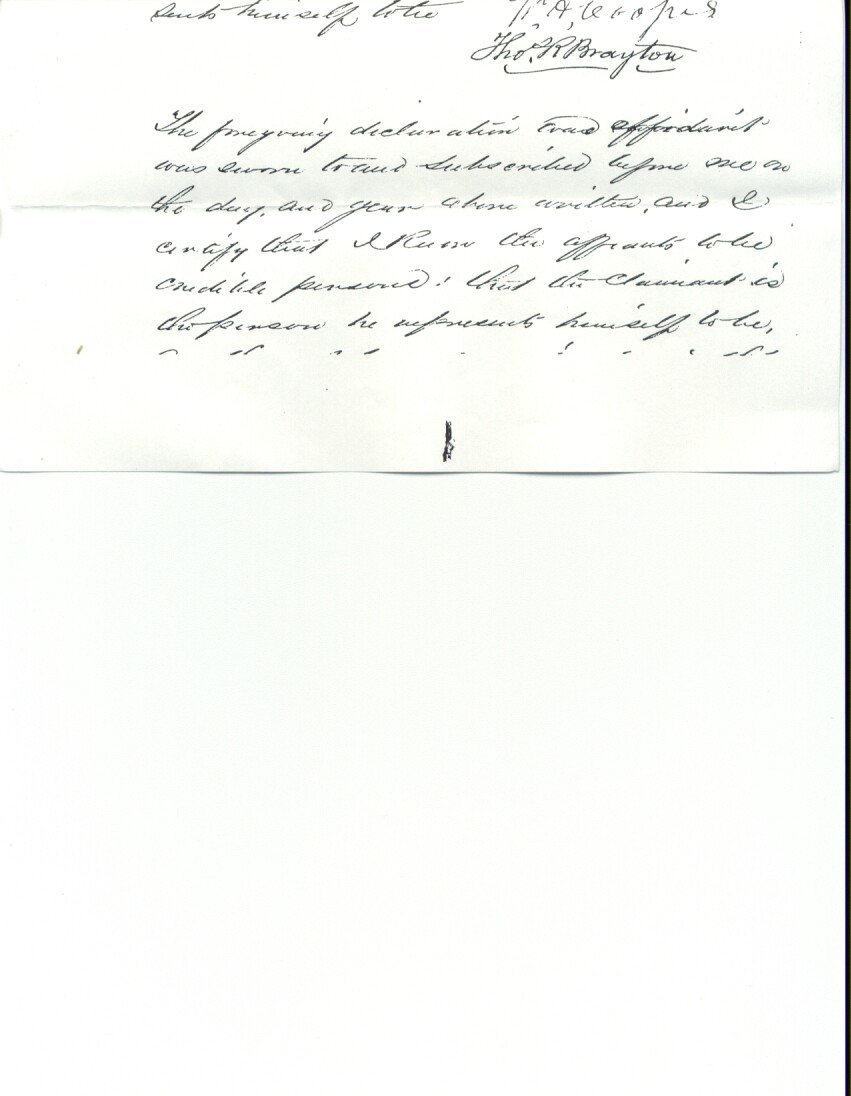 sents himself to be
T. A. Cooper
Thos. R Brayton
The foregoing declaration and affidavit
was sworn to and subscribed before me on
the day, and year above written, and I
certify that I Know the affiants to be
credible persons: that the Claimant is
the person he represents himself to be,